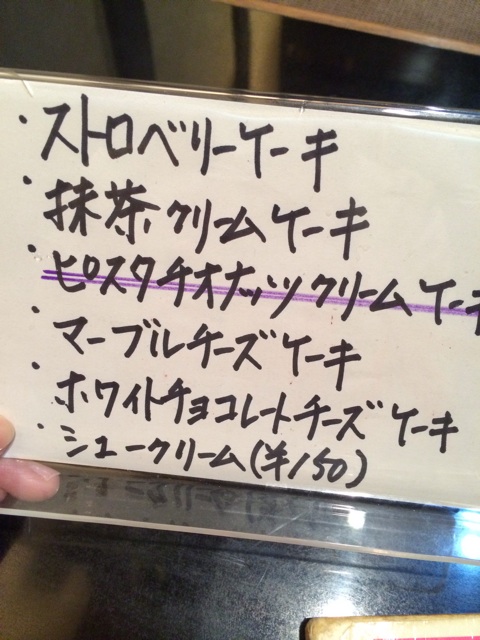 ・ストロベリーケーキ
・抹茶クリームケーキ
・ピスタチオナッツクリームケーキ
・マーブルチーズケーキ
・ホワイトチョコレートチーズケーキ
・シュークリーム(¥150)